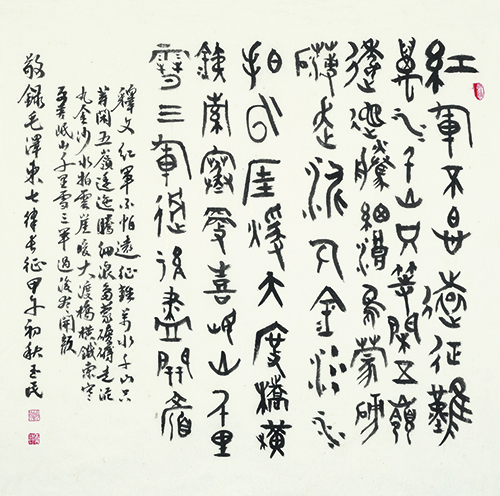 紅軍不怕遠征難
萬水千山只等閑五嶺
逶迤騰細浪烏蒙磅
礴走泥丸金沙水
拍雲崖暖大渡橋橫
鐵索寒更喜岷山千里
雪三軍過後盡開顏
釋文 紅軍不怕遠征難萬水千山只
等閑五嶺逶迤騰細浪烏蒙磅礴走泥
丸金沙水拍雲崖暖大渡橋橫鐵索寒
更喜岷山千里雪三軍過後盡開顏
敬録毛澤東七律長征甲午初秋玉民